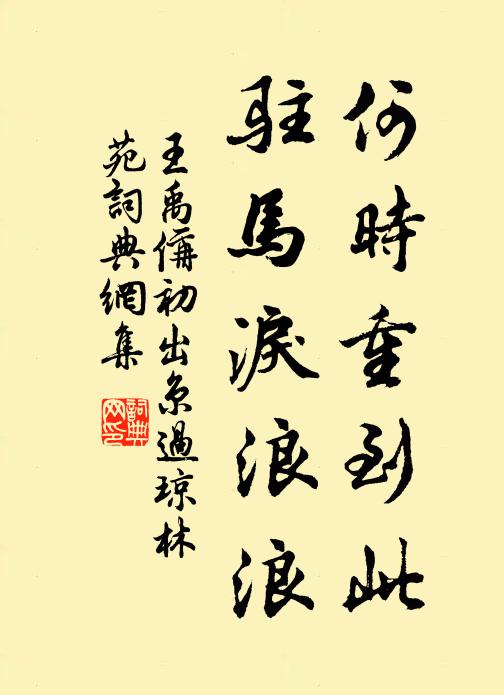 何時重到此
駐馬淚浪浪
王禹偁初出京過瓊林
苑詞典網集
詞典
网印